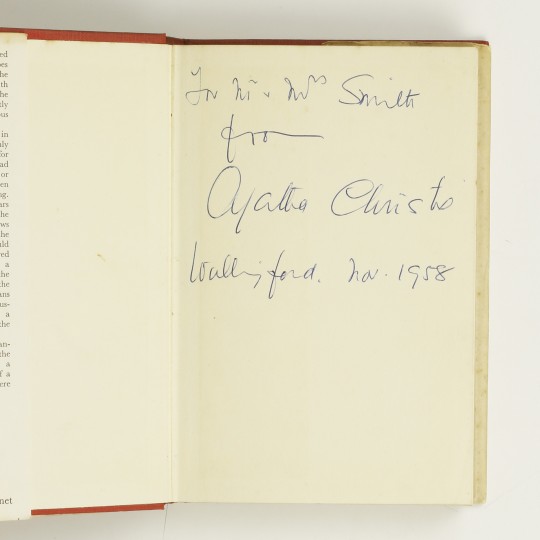 ed
es
he
th
he
ly
ous
in
nly
for
ad
or
en
ng.
ars
he
ws
the
ld
red
a
he
the
ans
us-
a
the
an-
the
a
f a
ere
net
For Mr & Mrs Smith
from
Agatha Christie
Wallingford. Nov. 1958